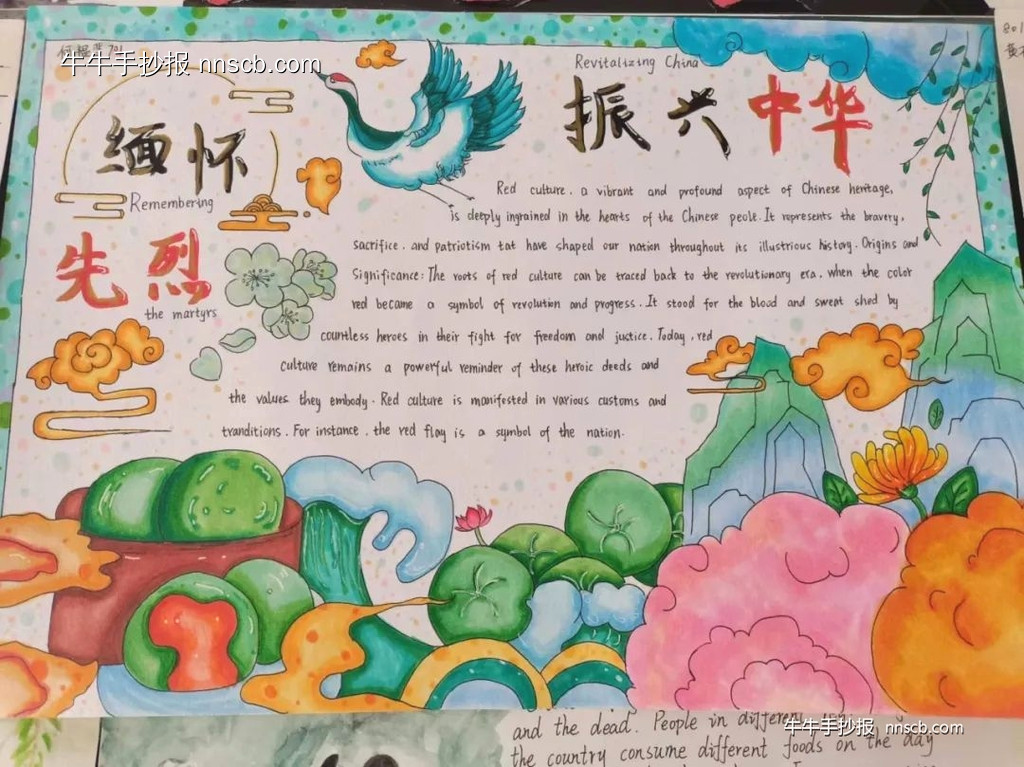 牛牛手抄报 nnscb.com
缅怀
Remembering
先烈
the martyrs
Revitalizing China
振兴中华
Red culture, a vibrant and profound aspect of Chinese heritage,
is deeply ingrained in the hearts of the Chinese peole. It represents the bravery,
sacrifice, and patriotism tat have shaped our nation throughout its illustrious history. Origins and
Significance: The roots of red culture can be traced back to the revolutionary era, when the color
red became a symbol of revolution and progress. It stood for the blood and sweat shed by
countless heroes in their fight for freedom and justice. Today, red
culture remains a powerful reminder of these heroic deeds and
the values they embody. Red culture is manifested in various customs and
tranditions. For instance, the red flag is a symbol of the nation.
801
and the dead. People in different
the country consume different foods on the day
牛牛手抄报 nnscb.com